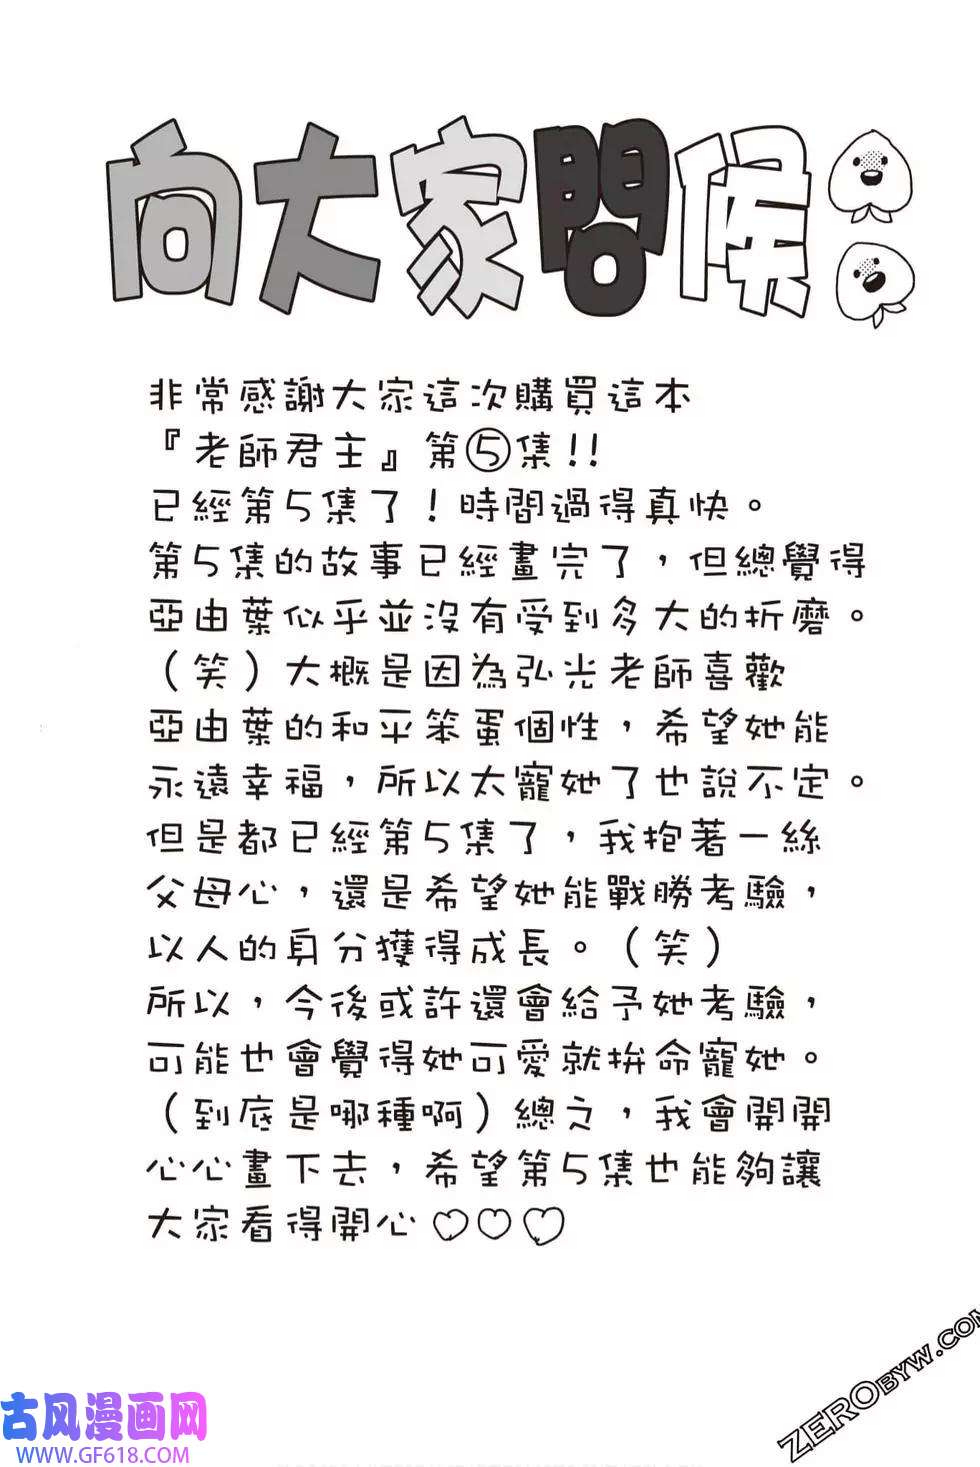 向大家問候
非常感謝大家這次購買這本
『老師君主』第⑤集!!
已經第5集了！時間過得真快。
第5集的故事已經畫完了，但總覺得
亞由葉似乎並沒有受到多大的折磨。
（笑）大概是因為弘光老師喜歡
亞由葉的和平笨蛋個性，希望她能
永遠幸福，所以太寵她了也說不定。
但是都已經第5集了，我抱著一絲
父母心，還是希望她能戰勝考驗，
以人的身分獲得成長。（笑）
所以，今後或許還會給予她考驗，
可能也會覺得她可愛就拚命寵她。
（到底是哪種啊）總之，我會開開
心心畫下去，希望第5集也能夠讓
大家看得開心♡♡♡
ZEROBYW.COM
古风漫画网
WWW.GF618.COM